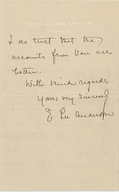 I do trust that the
accounts from Van are
better.
With kind regards
Yours very sincerely
J. Lee Anderson